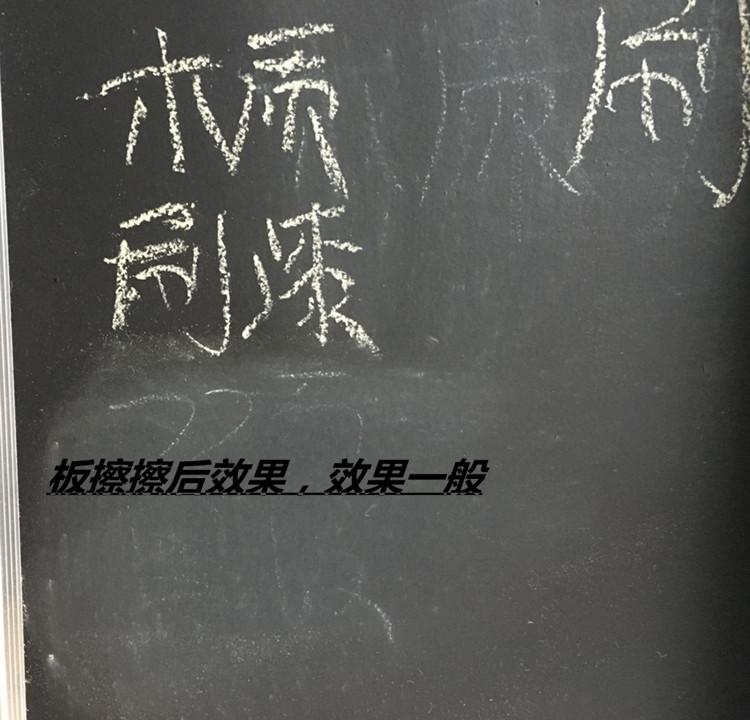 木质 刷
刷漆
板擦擦后效果，效果一般